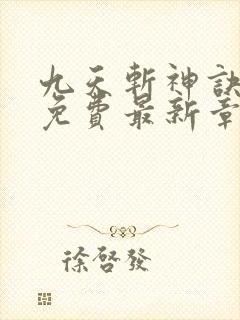 九天斬神訣
免費最新章
徐啓發